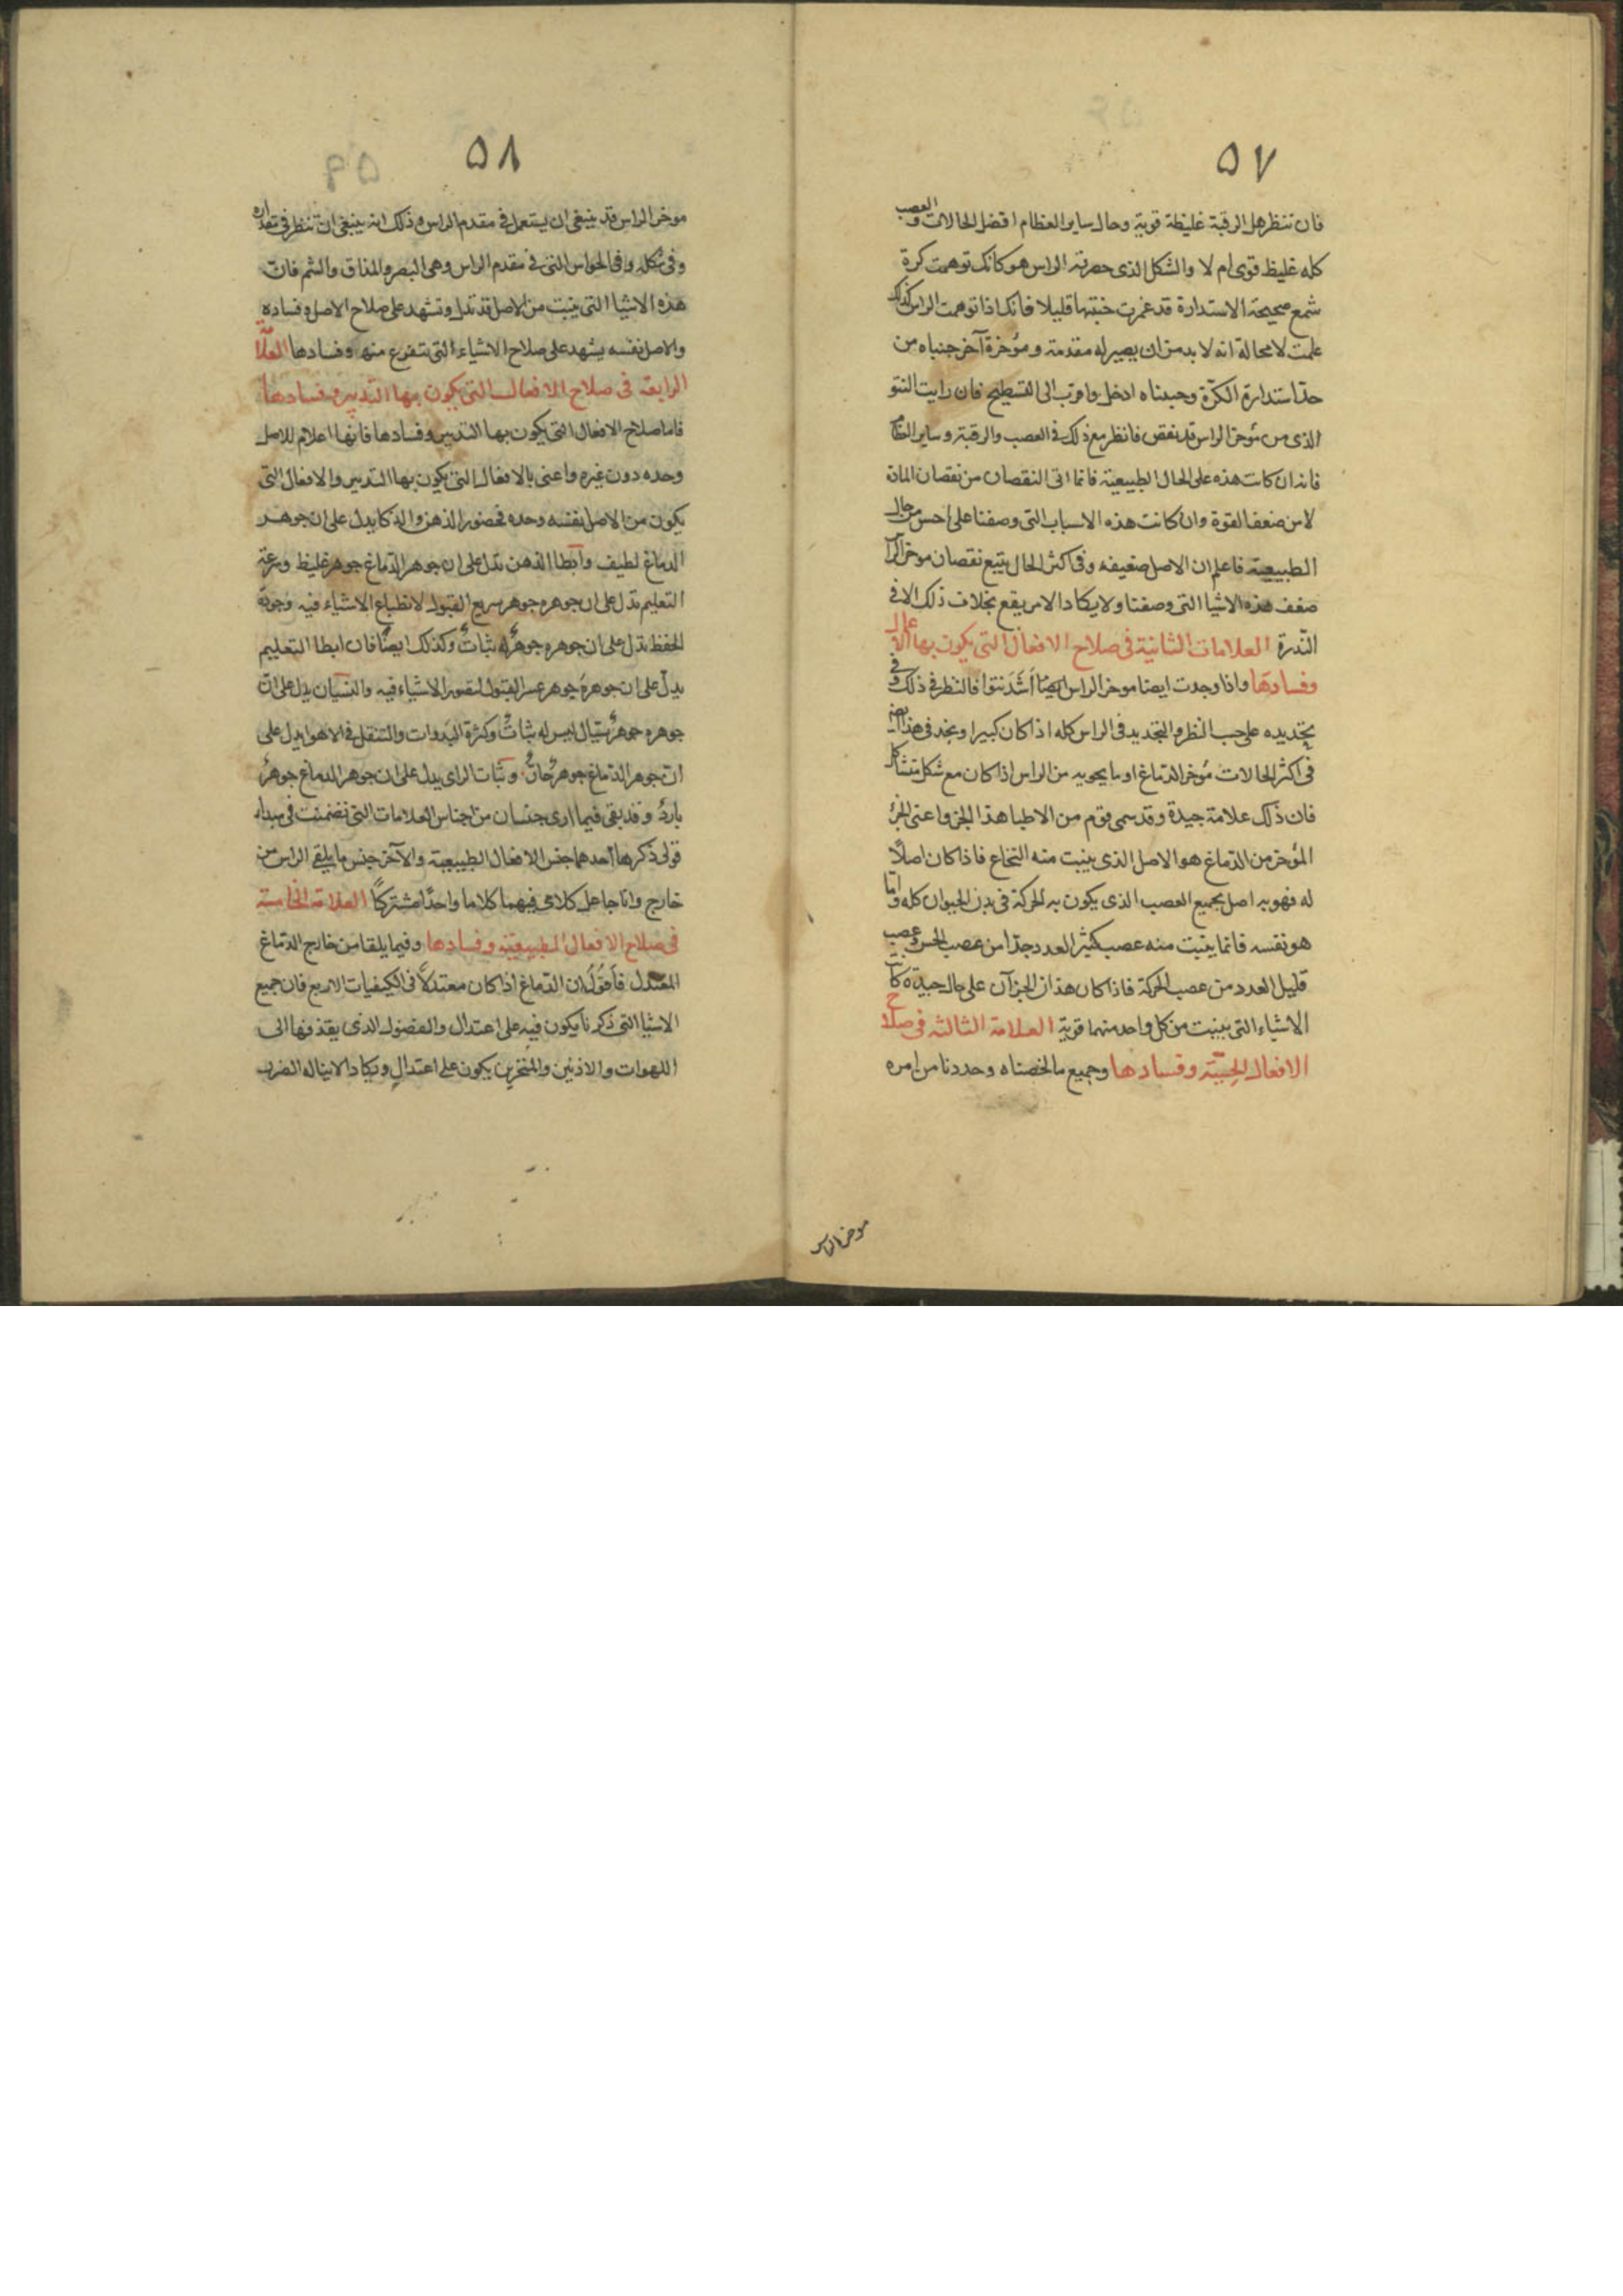 ٥٧
فان تنظر هل الرقبة غليظة قوية وحال ساير العظام افضل الحالات والعصب
كله غليظ قوى ام لا والشكل الذى حصرته الراس هو كانك توهمت كرة
شمع صحيحة الاستدارة قد غمزت جنبتها قليلا فانك اذا توهمت الراس كذلك
علمت لا محالة انه لا بد من ان يصير له مقدمة ومؤخرة آخر جنباه من
حد استدارة الكرّة وجبيناه ادخل واقرب الى التسطيح فان رايت النتو
الذى من مؤخر الراس قد نقص فانظر مع ذلك فى العصب والرقبة وساير العظام
فانه ان كانت هذه على الحال الطبيعية فانما اتى النقصان من نقصان المادة
لا من ضعف القوة وان كانت هذه الاسباب التى وصفنا على اخس من حال
الطبيعية فاعلم ان الاصل ضعيفه وفى اكثر الحال يتبع نقصان موخر الراس
ضعف هذه الاشيا التى وصفنا ولا يكاد الامر يقع بخلاف ذلك الا فى
النّدرة العلامات الثانية فى صلاح الافعال التى يكون بها الاعمال
وفسادها واذا وجدت ايضا موخر الراس ايضا اشد نتوا فالنظر فى ذلك وفى
تحديده على حسب النظر والتحديد فى الراس كله اذا كان كبيرا وتجد فى هذا ايضا
فى اكثر الحالات مؤخر الدماغ او ما يحويه من الراس اذا كان مع شكل متشاكل
فان ذلك علامة جيدة وقد سمى قوم من الاطبا هذا الجزو اعنى الجزؤ
المؤخر من الدماغ هو الاصل الذى ينبت منه النخاع فاذا كان اصلًا
له فهو به اصل بجميع العصب الذى يكون به الحركة فى بدن الحيوان كله واما
هو نفسه فانما ينبت منه عصب كثير العدد جدّا من عصب الحس وعصب
قليل العدد من عصب الحركة فاذا كان هذان الجزآن على حال جيدة كانت
الاشياء التى ينبت من كل واحد منهما قوية العلامة الثالثة فى صلاح
الافعال الحِسّيّة وفسادها وجميع ما لخصناه وحددنا من امره
موخر الراس
٥٨
موخر الراس قد ينبغى ان يستعمل فى مقدم الراس وذلك انه ينبغى ان تنظر فى مقداره
وفى شكله وفى الحواس التى فى مقدم الراس وهى البصر والمذاق والشم فان
هذه الاشيا التى ينبت من الاصل قد تدل وتشهد على صلاح الاصل وفساده
والاصل نفسه يشهد على صلاح الاشياء التى تتفرع منه وفسادها العلا
الرابعة فى صلاح الافعال التى يكون بها التدبير وفسادها
فاما صلاح الافعال التى يكون بها التدبير وفسادها فانها اعلام للاصل
وحده دون غيره واعنى بالافعال التى يكون بها التدبير والافعال التى
يكون من الاصل نفسه وحده فحضور الذهن والذكا يدل على ان جوهر
الدماغ لطيف وابطا الذهن تدل على ان جوهر الدماغ جوهر غليظ وسرعة
التعليم تدل على ان جوهره جوهر سريع القبول لانطباع الاشياء فيه وجودة
الحفظ تدل على ان جوهره جوهرٌ له ثباتٌ وكذلك ايضًا فان ابطا التعليم
يدل على ان جوهره جوهر عسر القبول لتصور الاشياء فيه والنسيان يدل على ان
جوهره جوهرٌ سيّال ليس له ثباتٌ وكثرة البَدوات والتنقل فى الاهوا يدل على
ان جوهر الدماغ جوهرٌ حارٌّ وثبات الراى يدل على ان جوهر الدماغ جوهرٌ
باردٌ وقد بقى فيما ارى جنسان من اجناس العلامات التى تضمنت فى مبداء
قولى ذكرها احدهما جنس الافعال الطبيعية والآخر جنس ما يلقى الراس من
خارج وانا جاعل كلامى فيهما كلاما واحدًا مشتركًا العلامة الخامسة
فى صلاح الافعال الطبيعية وفسادها وفيما يلقا من خارج الدماغ
المعتدل فاَقوُلُ ان الدماغ اذا كان معتدلًا فى الكيفيات الاربع فان جميع
الاشيا التى ذكرنا يكون فيه على اعتدال والفضول الذى يقذفها الى
اللهوات والاذنين والمنخرين يكون على اعتدالٍ ويكاد الا يناله الضرر